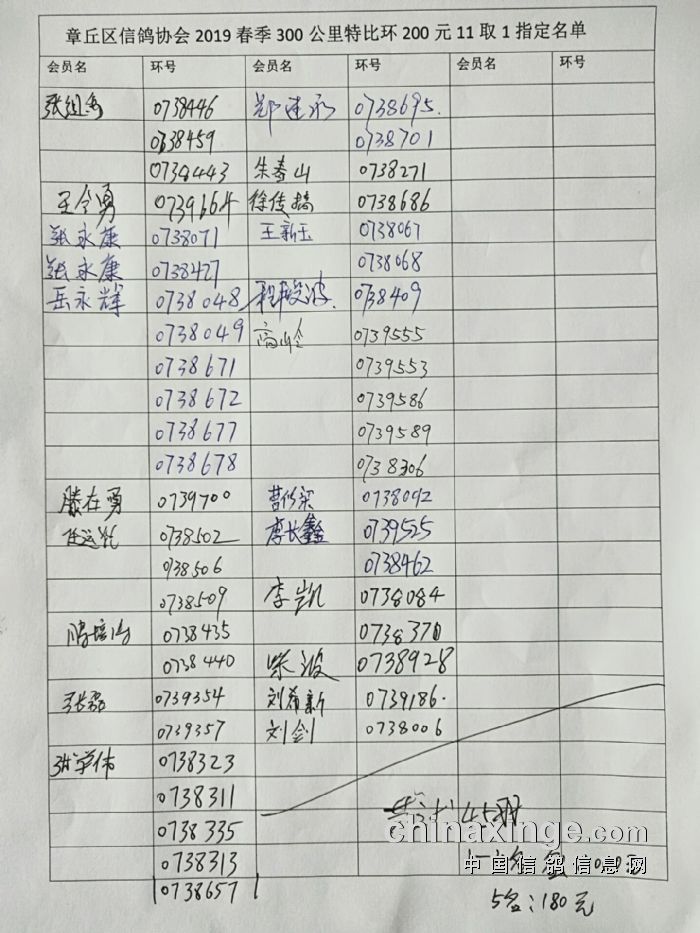 章丘区信鸽协会 2019 春季 300 公里特比环 200 元 11 取 1 指定名单
会员名 环号 会员名 环号 会员名 环号
0738446 郑建永 0738695.
0738459 0738701
0738443 朱寿山 0738271
王令勇 0739664 徐传 0738686
张永康 0738071 王新玉 0738067
张永康 0738427 0738068
岳永辉 0738048 0738409
0738049 高 0739555
0738671 0739553
0738672 0739586
0738677 0739589
0738678 0738306
滕在勇 0739700 曹 0738092
任运 0738502 李长鑫 0739525
0738506 0738462
0738509 李凯 0738084
培 0738435 0738370
0738440 柴波 0738928
张磊 0739354 刘希新 0739186.
0739357 刘剑 0738006
张学伟 0738323
0738311
0738335 共计45羽
chinaxinge.com
0738313
中国信鸽信息网
0738657 5名:180元